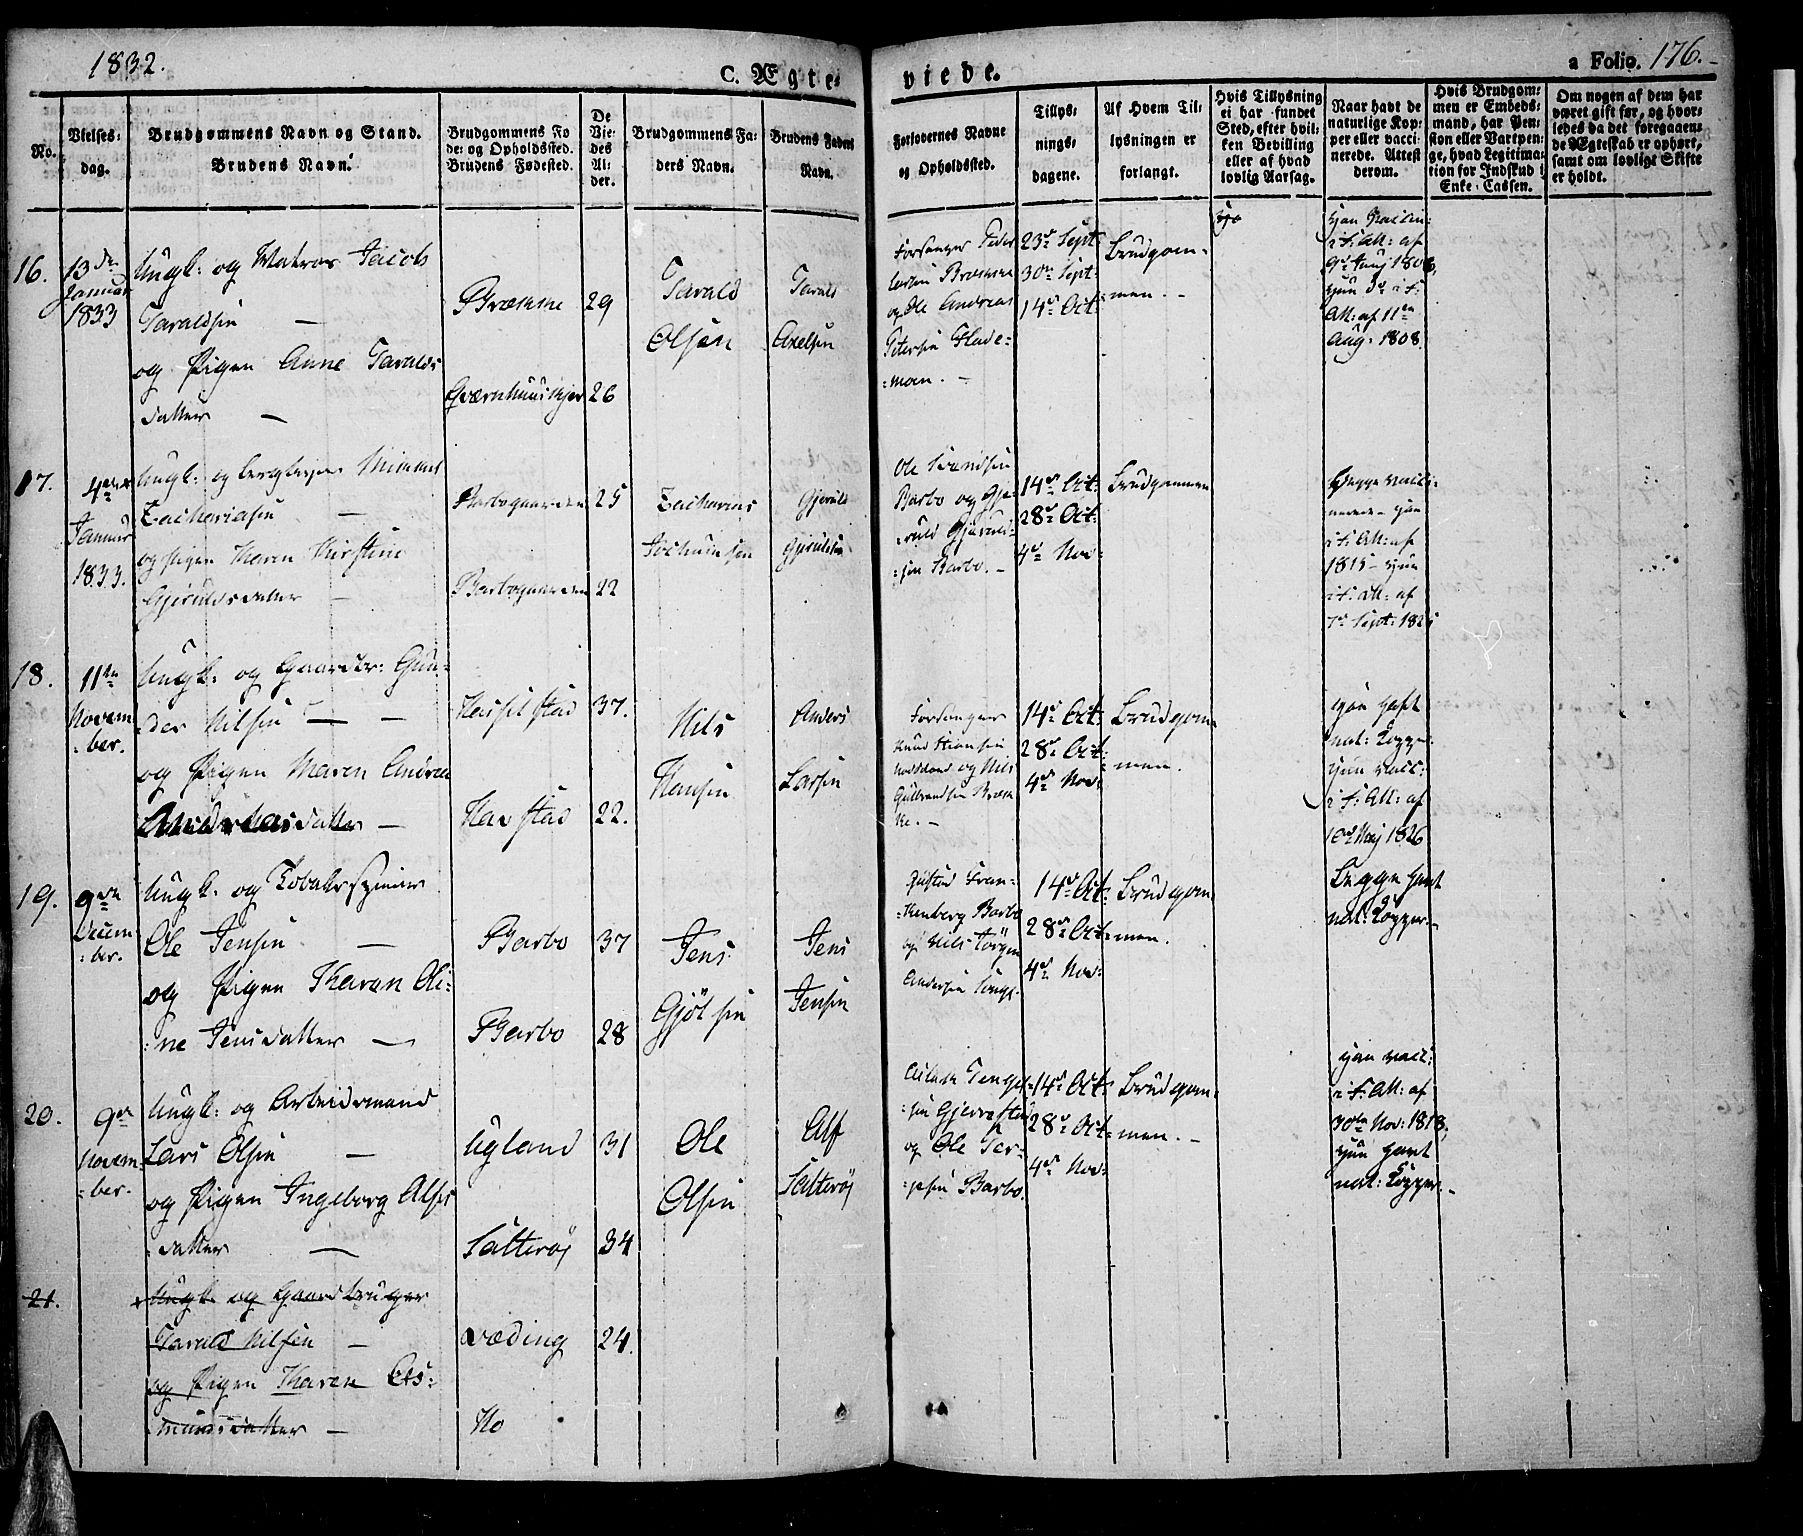 1832.
C. Ægte-
viede.
a Folio. 176.
No.
Vielses-
dag.
Brudgommens Navn og Stand.
Brudens Navn.
Brudgommens Fø
de- og Opholdssted.
Brudens Fødested.
De
Vie-
des
Al-
der.
Brudgommens Fa-
ders Navn.
Brudens Faders
Navn.
Forlovernes Navne
og Opholdssted.
Tillys-
nings-
dagene.
Af Hvem Til-
lysningen er
forlangt.
Hvis Tillysning
ei har fundet
Sted, efter hvil-
ken Bevilling
eller af hvad
lovlig Aarsag.
Naar havt de
naturlige Kop-
per eller vacci-
nerede. Attest
derom.
Hvis Brudgom-
men er Embeds-
mand, har Pen-
sion eller Vartpen-
ge, hvad Legitima-
tion for Indskud i
Enke-Cassen.
Om nogen af dem har
været gift før, og hvor-
ledes da det foregaaen-
de Ægteskab er ophørt,
samt om lovligt Skifte
er holdt.
16.
13de
Januar
1833
Ungk: og Matros Jacob
Taraldsen —
og Pigen Anne Taralds
datter —
Bræmme
Qværnhuuskjer
29
26
Tarald
Olsen
Tarald
Axelsen
Forsanger Peder
Bræmme
og Ole Andreas
Petersen Flade-
:moen. —
23de Sept:
30te Sept:
14de Oct:
Brudgom-
men. -
han vaccin:
i F: Att: af
9de Junj 1806,
hun do i F:
Att: af 11te
Aug: 1808.
17.
4de
Januar
1833.
Ungk: og
Zachariasen —
og Pigen Maren Kirstine
Gjeruldsdatter —
Barbogaarden
Barbogaarden
25
22
Zacharias
Jochumsen
Gjeruld
Gjeruldsen
Ole Svendsen
Barbo og Gje-
:ruld Gjeruld-
:sen Barbo. -
14de Oct:
28de Oct:
4de Nov:
Brudgommen
Begge vacci-
nerede - han
i F: Att: af
1815 - hun
i F: Att: af
7de Sept:
18.
11te
Novem
:ber.
Ungk: og Gaardbr: Gun-
:der Nilsen — —
og Pigen Maren Andrea
datter —
Hasselstad
Havstad
37.
22.
Nils
Hansen
Anders
Larsen
Forsanger
Knud Hansen
og Nils
Gulbrandsen Bræk
ke. -
14de Oct:
28de Oct:
4de Nov:
Brudgom-
men.
han havt
nat: Kopper.
hun vacc:
i F: Att: af
10de Maj 1826
19.
9de
Decem
:ber.
Ungk: og
Ole Jensen —
og Pigen Karen Oli-
:ne Jensdatter —
Barbo
Barbo
37
28
Jens
Gjølsen
Jens
Jensen
Gustad Fran-
:kenberg Barbo
og Nils Jörgen
Andersen
14de Oct:
28de Oct:
4de Nov:
Brudgom
men.
Begge havt
nat: Kopper. -
20.
9de
Novem-
:ber.
Ungk: og Arbeidsmand
Lars Olsen —
og Pigen Ingeborg Alfs
datter —
Ugland
Satterøj
31
34
Ole
Olsen
Alf
Satterøj
Aslach Tengel-
:sen
og Ole Ter-
:jesen Barbo.
14de Oct:
28de Oct:
4de Nov:
Brudgom-
men. -
han vacc:
i F: Att: af
30te Nov: 1818,
hun havt
nat: Kopper. -
21.
Ungk. og Gaardbruger
Tarald Nilsen —
og Pigen Karen As-
mundsdatter —
Væding
No
24.